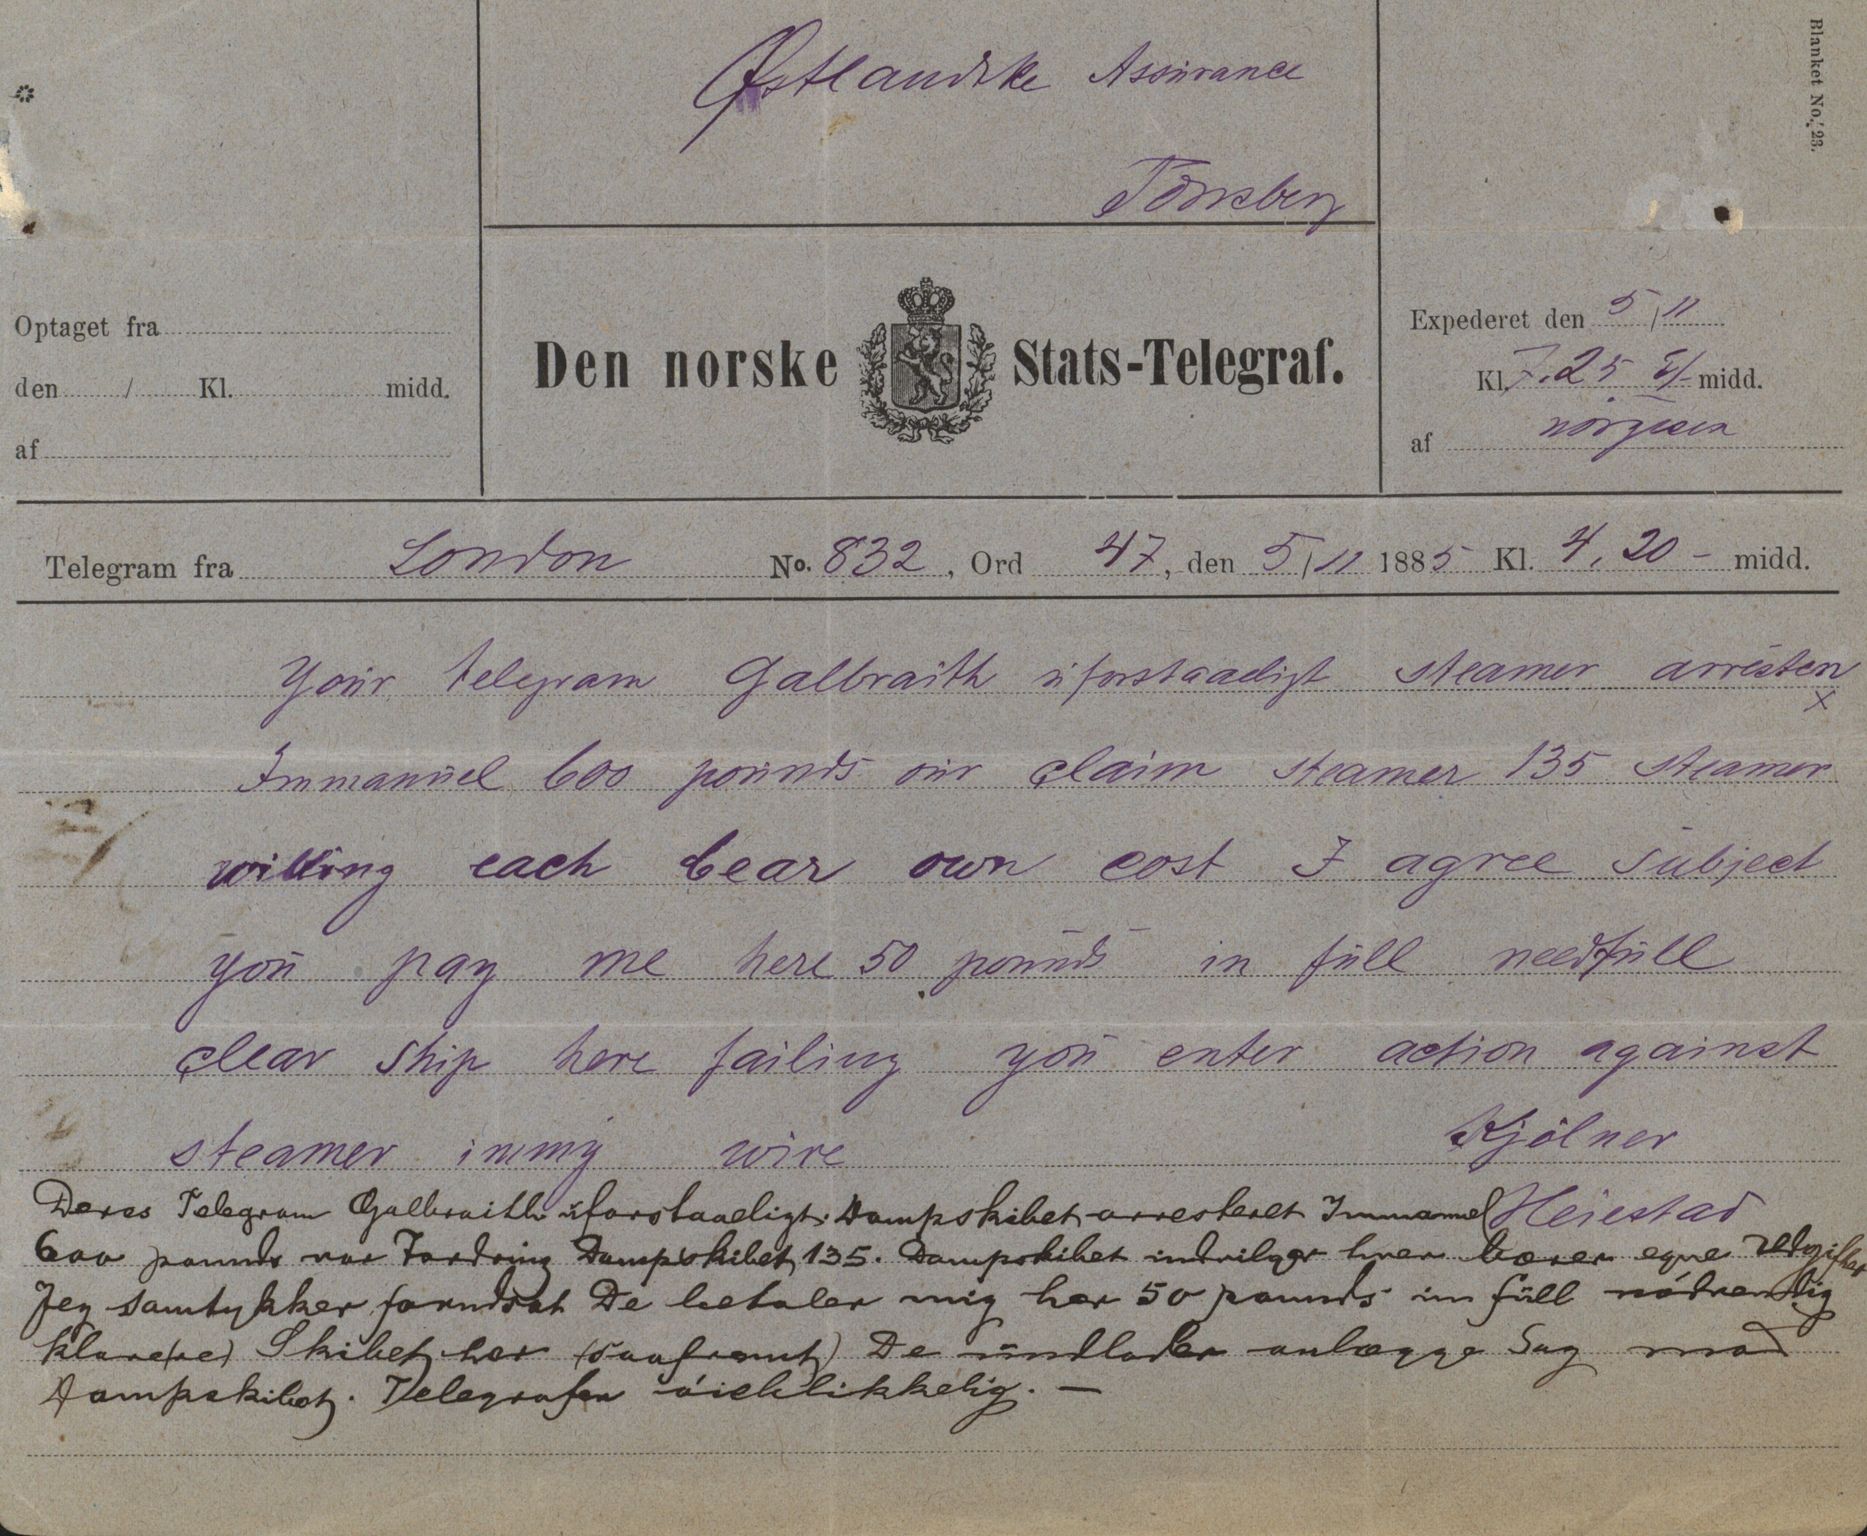 Blanket No. 23.
Østlandske Assurance
Tönsberg
Optaget fra
den / Kl. midd.
af
Den norske Stats-Telegraf.
Expederet den 5/11
Kl. 7.25 E/ midd.
af
Telegram fra London No. 832, Ord 47, den 5/11 1885 Kl. 4.20 - midd.
Your telegram Galbraith uforstaaeligt steamer arresten x
Immanuel 600 pounds our claim steamer 135 steamer
willing each bear own cost I agree subject
you pay me here 50 pounds in full needfull
clear ship here failing you enter action against
steamer immy wire Kjölner
Heiestad
Deres Telegram Galbraith uforstaaeligt. Dampskibet arresteret Immanuel
600 pounds vor Fordring Dampskibet 135. Dampskibet indvilger hver bærer egne Udgifter
Jeg samtykker forudsat De betaler mig her 50 pounds in full nödvendig
klare(re) Skibet her (saafremt) De undlader anlægge Sag mod
Dampskibet. Telegrafer öieblikkelig. —